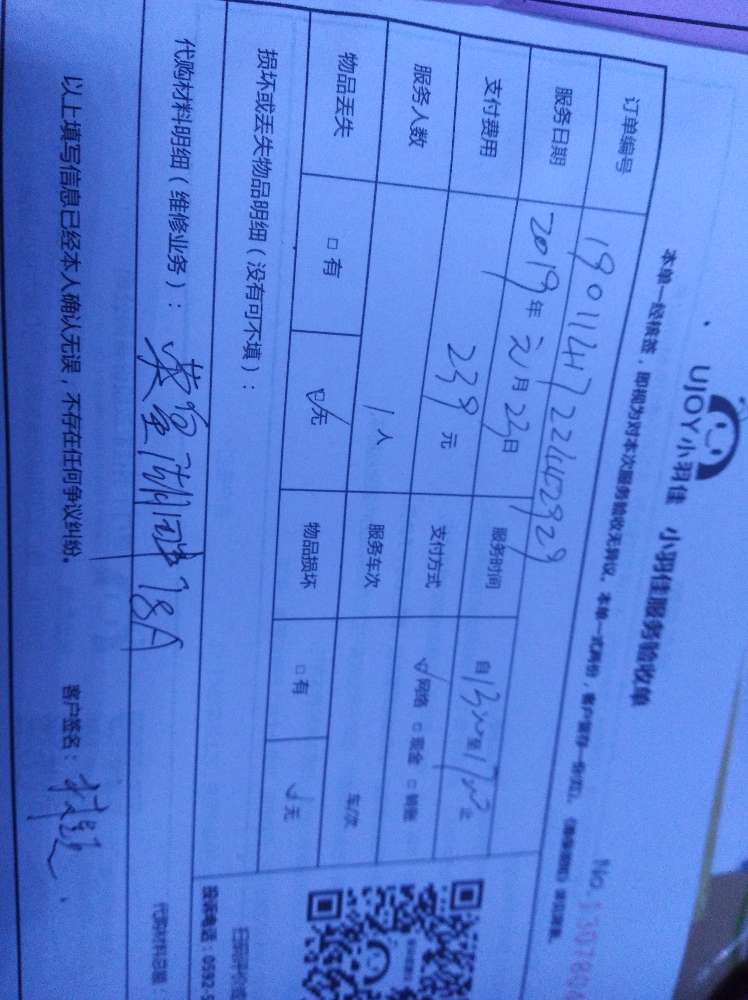 UJOY小羽佳 小羽佳服务验收单
No.
本单一经核签，即视为对本次服务验收无异议。本单一式两份，客户留存一份
订单编号 19011417224402929
服务日期 2019年 元月 23日 服务时间 自 13 至 17 止
支付费用 239元 支付方式 ☑网络 □现金 □转账
服务人数 1人 服务车次 车/次
物品丢失 □有 ☑无 物品损坏 □有 ☑无
损坏或丢失物品明细（没有可不填）：
代购材料明细（维修业务）： 18A
代购材料总额
以上填写信息已经本人确认无误，不存在任何争议纠纷。 客户签名：
扫码评价
投诉电话：0592-5